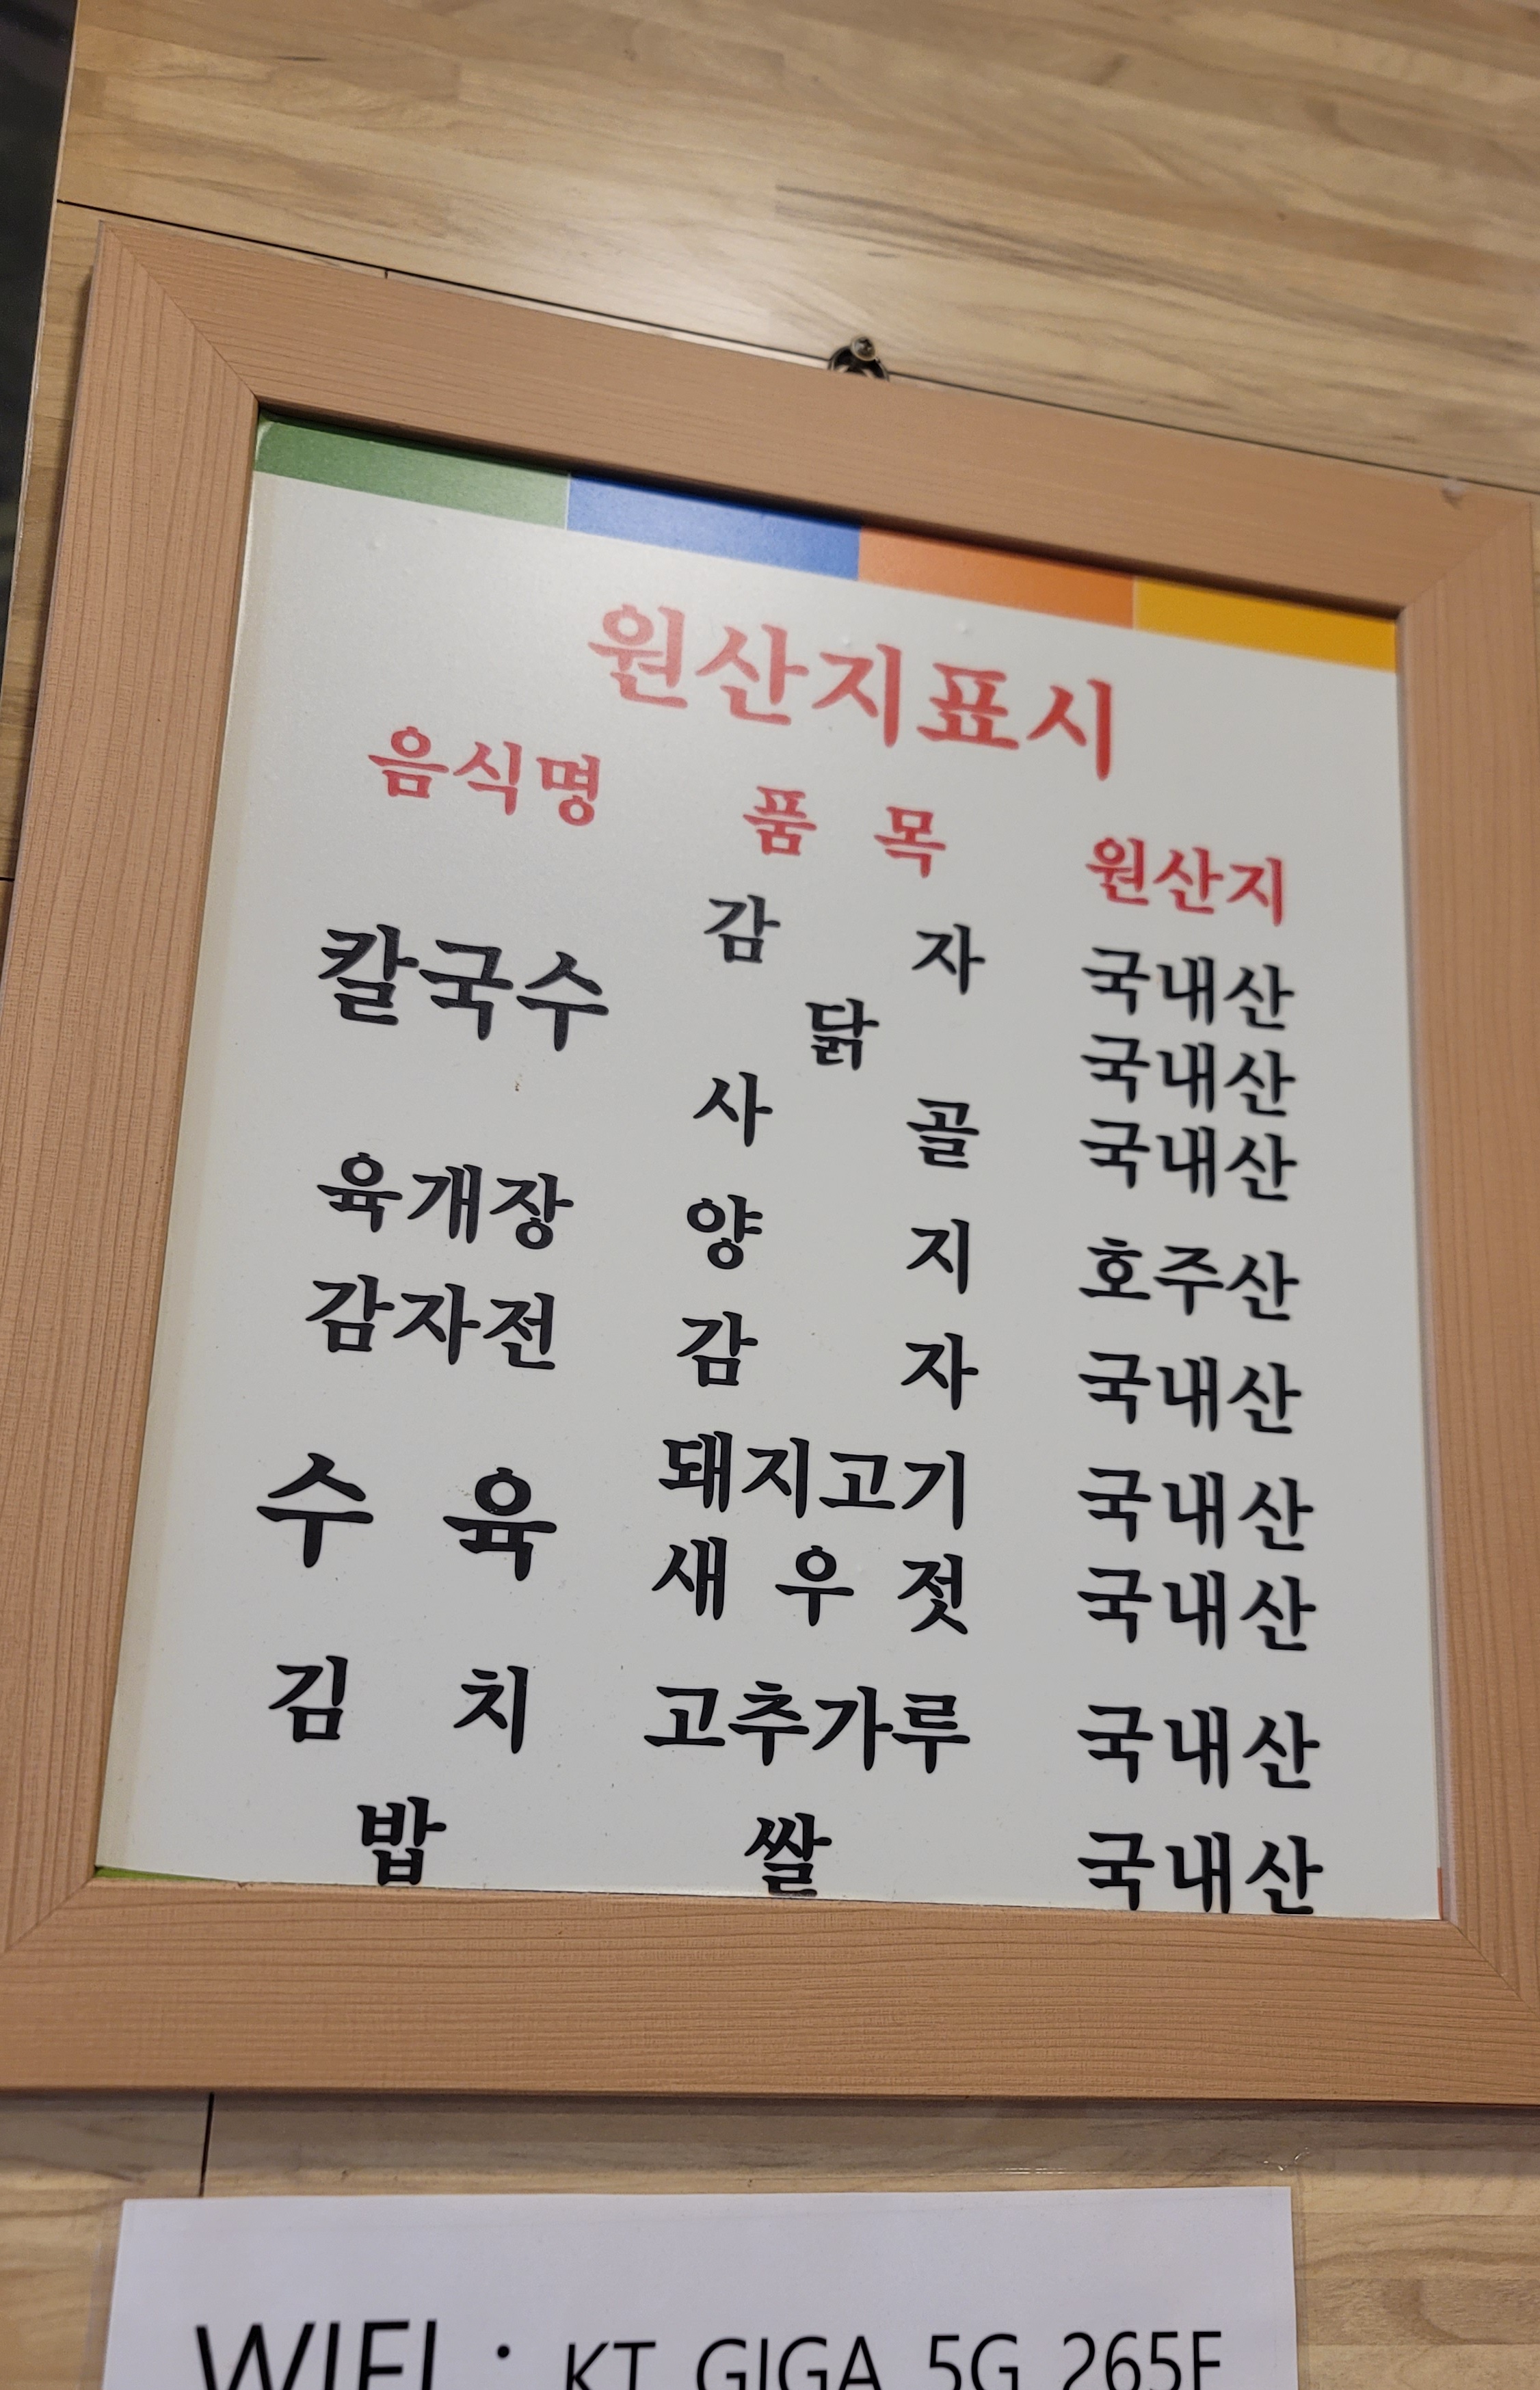 원산지표시
음식명 품 목 원산지
칼국수 감 자 국내산
닭 국내산
사 골 국내산
육개장 양 지 호주산
감자전 감 자 국내산
수 육 돼지고기 국내산
새 우 젓 국내산
김 치 고추가루 국내산
밥 쌀 국내산
WIFI : KT GIGA 5G 265F